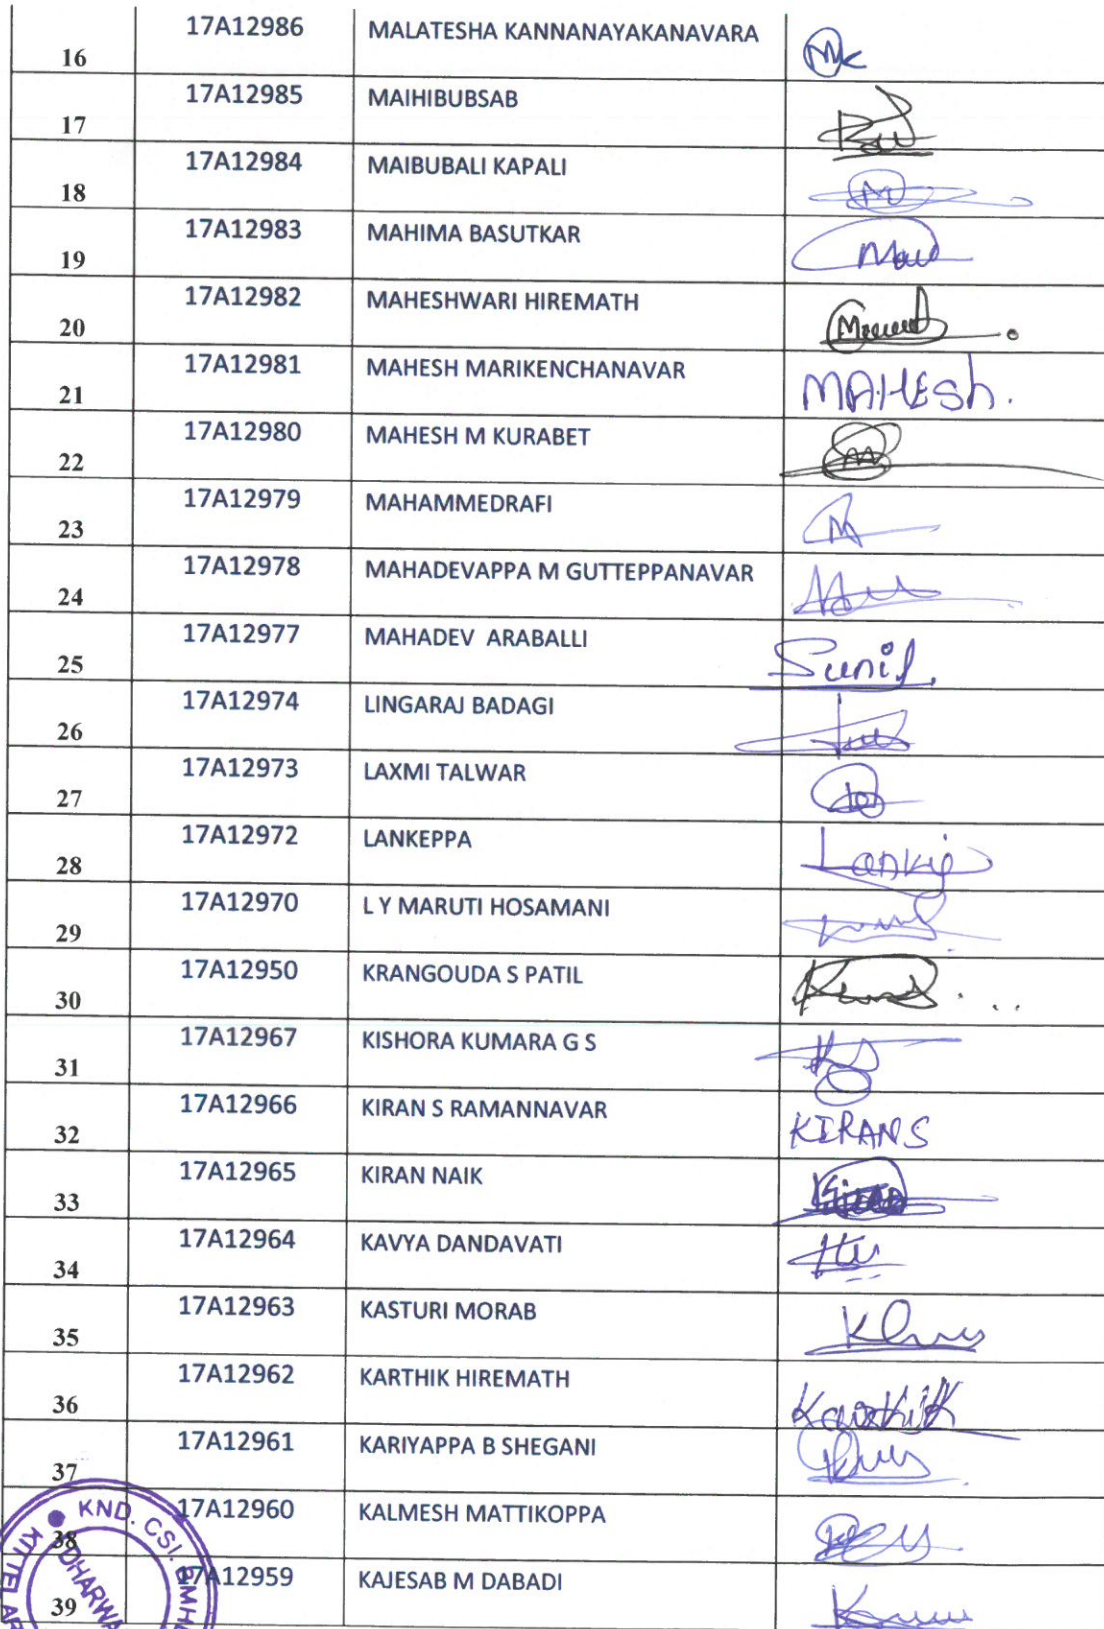 16 17A12986 MALATESHA KANNANAYAKANAVARA MK
17 17A12985 MAIHIBUBSAB
18 17A12984 MAIBUBALI KAPALI M
19 17A12983 MAHIMA BASUTKAR
20 17A12982 MAHESHWARI HIREMATH
21 17A12981 MAHESH MARIKENCHANAVAR MAHESh.
22 17A12980 MAHESH M KURABET
23 17A12979 MAHAMMEDRAFI M
24 17A12978 MAHADEVAPPA M GUTTEPPANAVAR
25 17A12977 MAHADEV ARABALLI Sunil.
26 17A12974 LINGARAJ BADAGI
27 17A12973 LAXMI TALWAR
28 17A12972 LANKEPPA
29 17A12970 L Y MARUTI HOSAMANI
30 17A12950 KRANGOUDA S PATIL
31 17A12967 KISHORA KUMARA G S
32 17A12966 KIRAN S RAMANNAVAR KIRAN S
33 17A12965 KIRAN NAIK Kiran
34 17A12964 KAVYA DANDAVATI
35 17A12963 KASTURI MORAB
36 17A12962 KARTHIK HIREMATH Karthik
37 17A12961 KARIYAPPA B SHEGANI
38 17A12960 KALMESH MATTIKOPPA
39 17A12959 KAJESAB M DABADI
KND. CSI. BMH
KITTEL AR
DHARWA